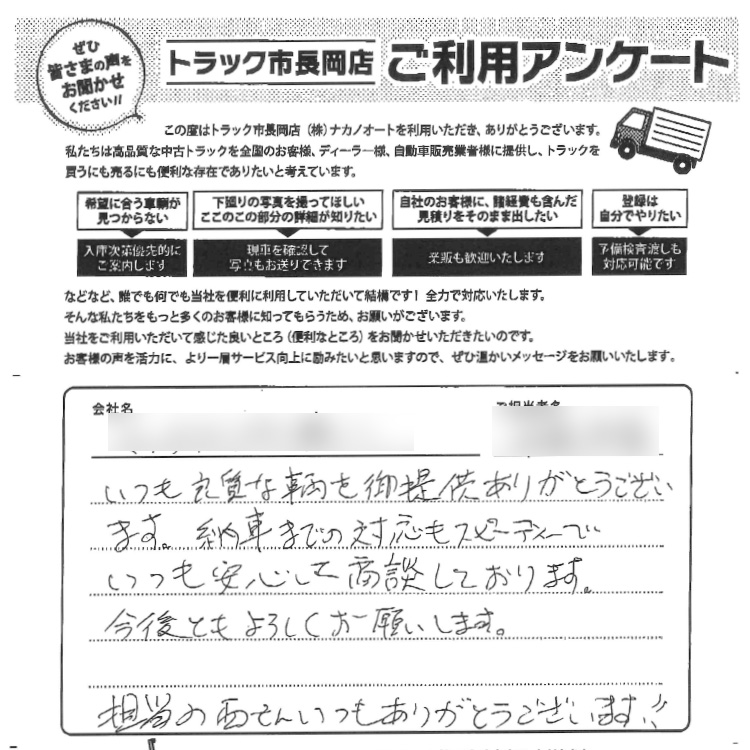 ぜひ
皆さまの声を
お聞かせ
ください!!
トラック市長岡店 ご利用アンケート
この度はトラック市長岡店(株)ナカノオートを利用いただき、ありがとうございます。
私たちは高品質な中古トラックを全国のお客様、ディーラー様、自動車販売業者様に提供し、トラックを
買うにも売るにも便利な存在でありたいと考えています。
希望に合う車輌が
見つからない
入庫次第優先的に
ご案内します
下廻りの写真を撮ってほしい
ここのこの部分の詳細が知りたい
現車を確認して
写真もお送りできます
自社のお客様に、諸経費も含んだ
見積りをそのまま出したい
業販も歓迎いたします
登録は
自分でやりたい
予備検査渡しも
対応可能です
などなど、誰でも何でも当社を便利に利用していただいて結構です!全力で対応いたします。
そんな私たちをもっと多くのお客様に知ってもらうため、お願いがございます。
当社をご利用いただいて感じた良いところ(便利なところ)をお聞かせいただきたいのです。
お客様の声を活力に、より一層サービス向上に励みたいと思いますので、ぜひ温かいメッセージをお願いいたします。
会社名 ご担当者名
いつも良質な車両を御提供ありがとうござい
ます。納車までの対応もスピーディーで
いつも安心して商談しております。
今後ともよろしくお願いします。
担当の西さんいつもありがとうございます!!